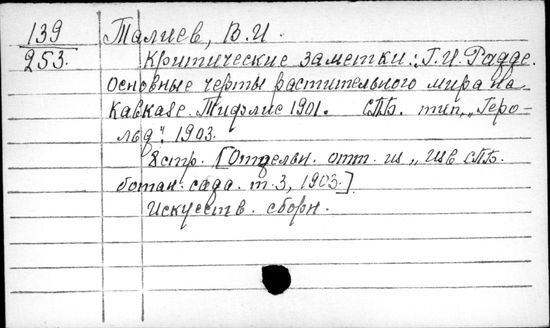 139 Талиев, В.И.
253. Критические заметки: Г.И. Радде.
Основные черты растительного мира на
Кавказе. Тифлис 1901. СПБ. тип. „Геро-
льд". 1903.
8 стр. [Отдельн. отт. из „Изв СПБ.
ботан. сада. т. 3, 1903.]
Искусств. сборн.